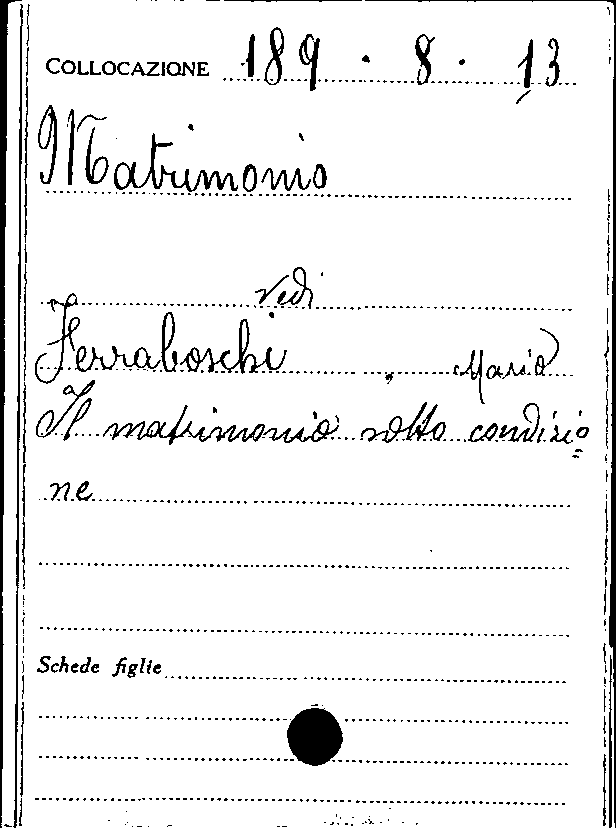 COLLOCAZIONE 189 . 8 . 13
Matrimonio
vedi
Ferraboschi , Mario
Il matrimonio sotto condizio=
ne
Schede figlie